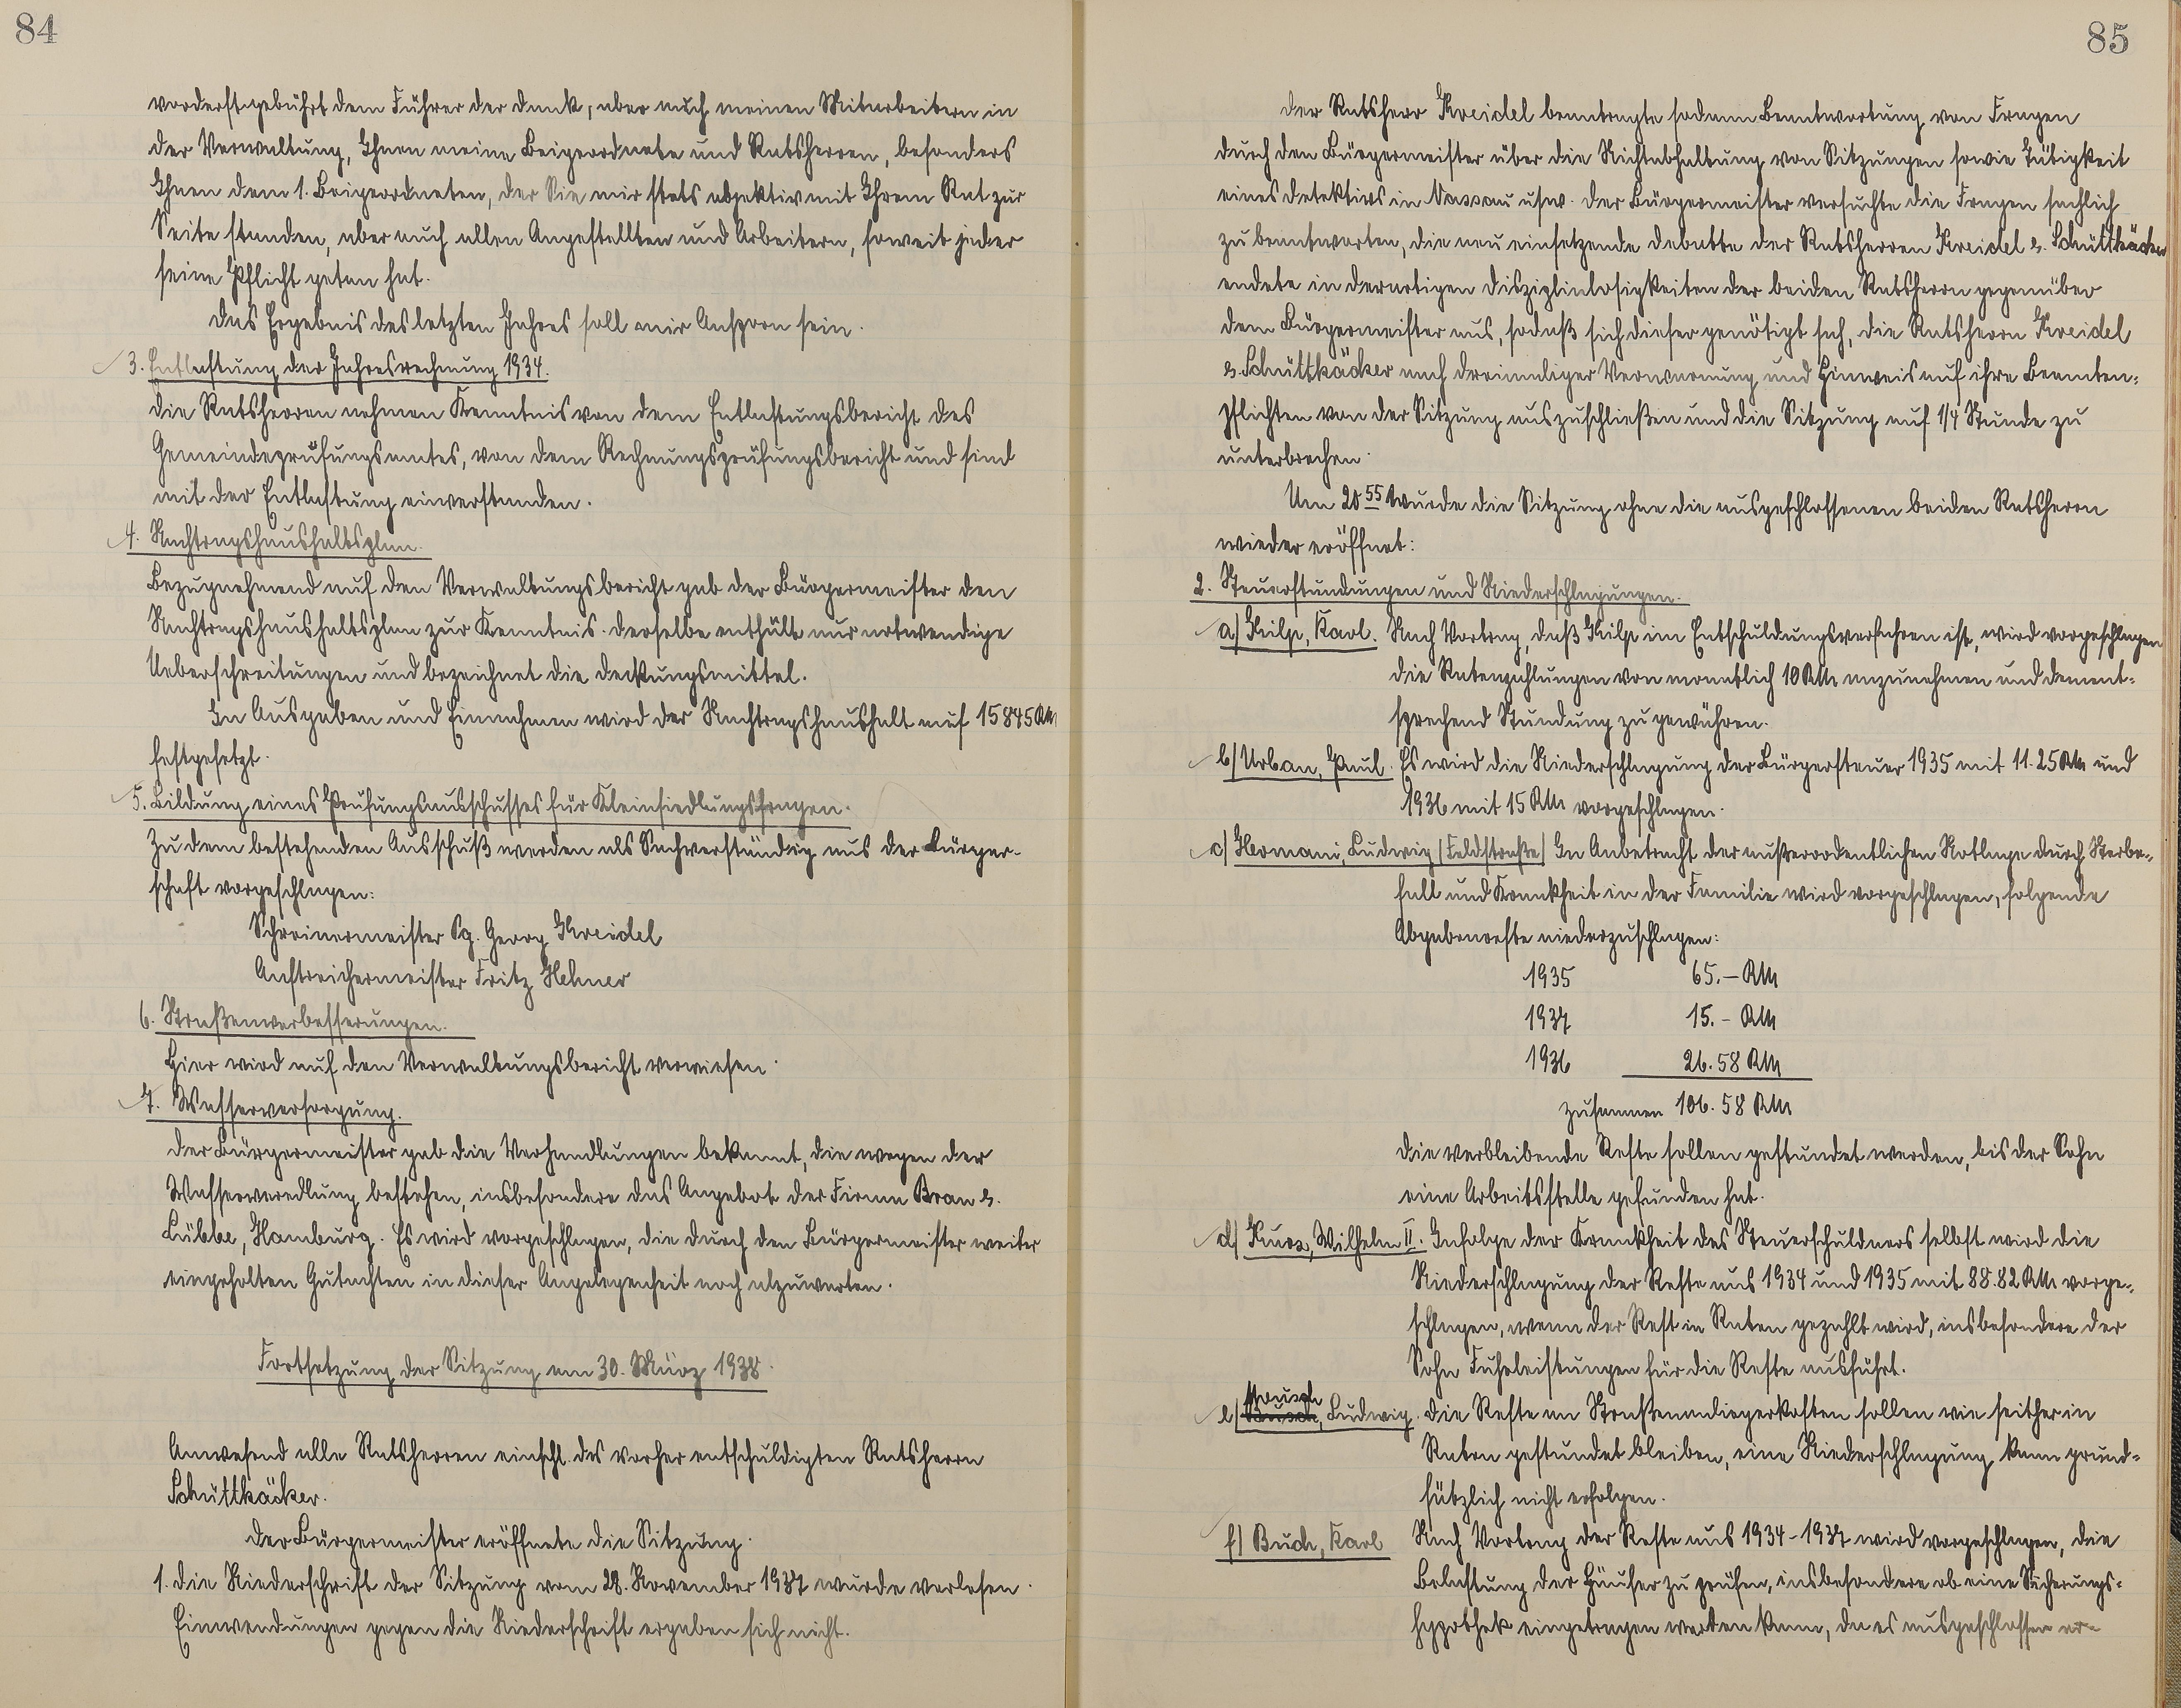 84
vorderst gebührt dem Führer der Dank, aber auch meinen Mitarbeitern in
der Verwaltung, Ihnen meine Beigeordnete und Ratsherren, besonders
Ihnen dem 1. Beigeordneten, der Sie mir stets objektiv mit Ihrem Rat zur
Seite standen, aber auch allen Angestellten und Arbeitern, soweit jeder
seine Pflicht getan hat.
Das Ergebnis des letzten Jahres soll mir Ansporn sein.
3. Entlastung der Jahresrechnung 1934.
Die Ratsherren nehmen Kenntnis von dem Entlastungsbericht des
Gemeindeprüfungsamtes, von dem Rechnungsprüfungsbericht und sind
mit der Entlastung einverstanden.
4. Nachtragshaushaltsplan.
Bezugnehmend auf den Verwaltungsbericht gab der Bürgermeister den
Nachtragshaushaltsplan zur Kenntnis. Derselbe enthält nur notwendige
Ueberschreitungen und bezeichnet die Deckungsmittel.
In Ausgaben und Einnahmen wird der Nachtragshaushalt auf 15845 RM
festgesetzt.
5. Bildung eines Prüfungsausschusses für Kleinsiedlungsfragen.
Zu dem bestehenden Ausschuß werden als Sachverständig aus der Bürger-
schaft vorgeschlagen:
Schreinermeister Pg. Georg Kreidel
Anstreichermeister Fritz Hehner
6. Straßenverbesserungen.
Hier wird auf den Verwaltungsbericht verwiesen.
7. Wasserversorgung.
Der Bürgermeister gab die Verhandlungen bekannt, die wegen der
Wasserveredlung bestehen, insbesondere das Angebot der Firma Bran &
Lübbe, Hamburg. Es wird vorgeschlagen, die durch den Bürgermeister weiter
eingeholten Gutachten in dieser Angelegenheit noch abzuwarten.
Fortsetzung der Sitzung am 30. März 1938.
Anwesend alle Ratsherren einschl. des vorher entschuldigten Ratsherrn
Schüttkäcker.
Der Bürgermeister eröffnete die Sitzung.
1. Die Niederschrift der Sitzung vom 28. November 1937 wurde verlesen.
Einwendungen gegen die Niederschrift ergaben sich nicht.
85
Der Ratsherr Kreidel beantragte sodann Beantwortung von Fragen
durch den Bürgermeister über die Nichtabhaltung von Sitzungen sowie Tätigkeit
eines Detektivs in Nassau usw. Der Bürgermeister versuchte die Fragen sachlich
zu beantworten, die neu einsetzende Debatte der Ratsherren Kreidel & Schüttkäcker
endete in derartigen Disziplinlosigkeiten der beiden Ratsherrn gegenüber
dem Bürgermeister aus, sodaß sich dieser genötigt sah, die Ratsherrn Kreidel
& Schüttkäcker nach dreimaliger Verwarnung und Hinweis auf ihre Beamten-
pflichten von der Sitzung auszuschließen und die Sitzung auf 1/4 Stunde zu
unterbrechen.
Um 20 55 wurde die Sitzung ohne die ausgeschlossenen beiden Ratsherrn
wieder eröffnet:
2. Steuerstundungen und Niederschlagungen.
a) Hilp, Karl. Nach Vortrag, daß Hilp im Entschuldungsverfahren ist, wird vorgeschlagen
die Ratenzahlungen von monatlich 10 RM anzunehmen und dement-
sprechend Stundung zu gewähren.
b) Urban, Paul. Es wird die Niederschlagung der Bürgersteuer 1935 mit 11.25 RM und
1936 mit 15 RM vorgeschlagen.
c) Hermani, Ludwig (Feldstraße) In Anbetracht der außerordentlichen Notlage durch Sterbe-
fall und Krankheit in der Familie wird vorgeschlagen, folgende
Abgabenreste niederzuschlagen:
1935 65.— RM
1937 15.— RM
1936 26.58 RM
zusammen 106.58 RM
Die verbleibende Reste sollen gestundet werden, bis der Sohn
eine Arbeitsstelle gefunden hat.
d) Kurz, Wilhelm II. Infolge der Krankheit des Steuerschuldners selbst wird die
Niederschlagung der Reste aus 1934 und 1935 mit 88.82 RM vorge-
schlagen, wenn der Rest in Raten gezahlt wird, insbesondere der
Sohn Fuhrleistungen für die Reste ausführt.
e) Ludwig. Die Reste an Straßenanliegerkosten sollen wie seither in
Raten gestundet bleiben, eine Niederschlagung kann grund-
sätzlich nicht erfolgen.
f) Buch, Karl Nach Vortrag der Reste aus 1934-1937 wird vorgeschlagen, die
Belastung der Häuser zu prüfen, insbesondere ob eine Sicherungs-
hypothek eingetragen werden kann, da es ausgeschlossen er-